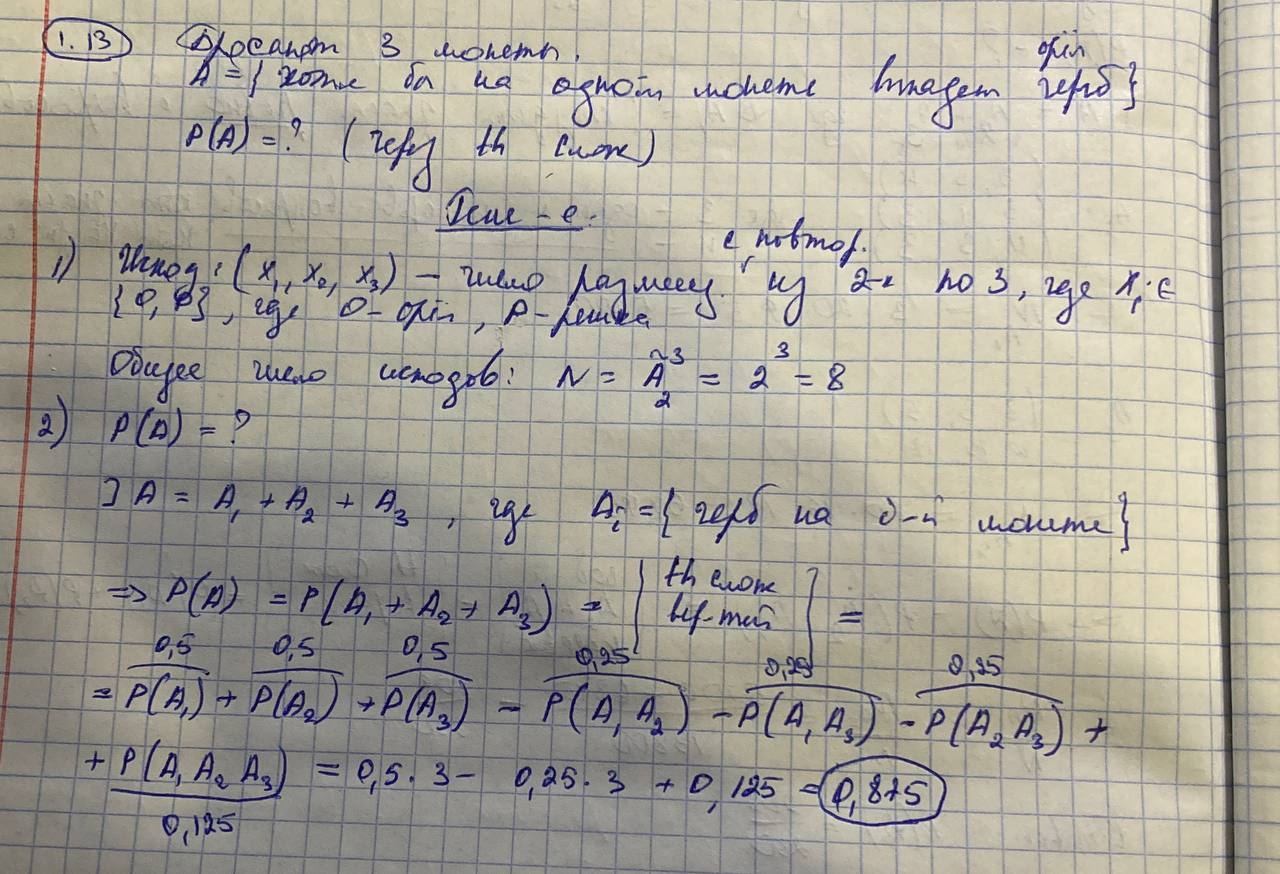 1.13 Бросают 3 монеты.
орёл
A = { хотя бы на одной монете выпадет герб}
P(A) = ? (через th слож)
Реш-е.
с повтор.
1) Исход: (x₁, x₂, x₃) – число размещ. из 2-х по 3, где xᵢ ∈
{О, Р}, где О-орёл, Р-решка
Общее число исходов: N = Ã₂³ = 2³ = 8
2) P(A) = ?
] A = A₁ + A₂ + A₃, где Aᵢ = { герб на i-й монете}
=> P(A) = P(A₁ + A₂ + A₃) = | th слож вер-тей | =
0,5 0,5 0,5 0,25 0,25 0,25
= P(A₁) + P(A₂) + P(A₃) – P(A₁A₂) – P(A₁A₃) – P(A₂A₃) +
+ P(A₁A₂A₃) = 0,5·3 – 0,25·3 + 0,125 = 0,875
0,125